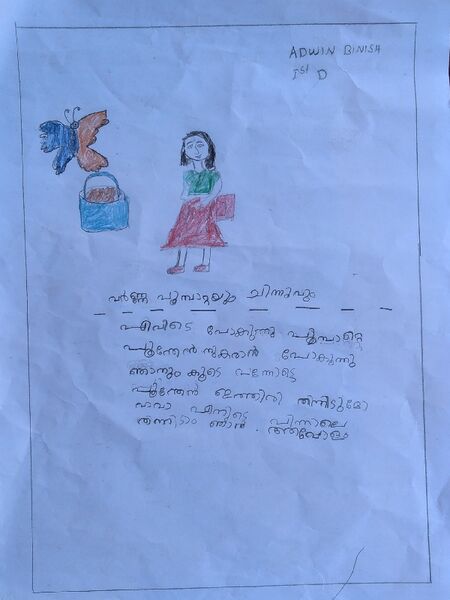 ADWIN BINISH
Ist D
വർണ്ണ പൂമ്പാറ്റയും ചിന്നുവും
എവിടെ പോകുന്നു പൂമ്പാറ്റെ
പൂന്തേൻ നുകരാൻ പോകുന്നു
ഞാനും കൂടെ വന്നോട്ടെ
പൂന്തേൻ ഇത്തിരി തന്നീടുമോ
വാവാ എന്നുടെ പിന്നാലെ
തന്നിടാം ഞാൻ